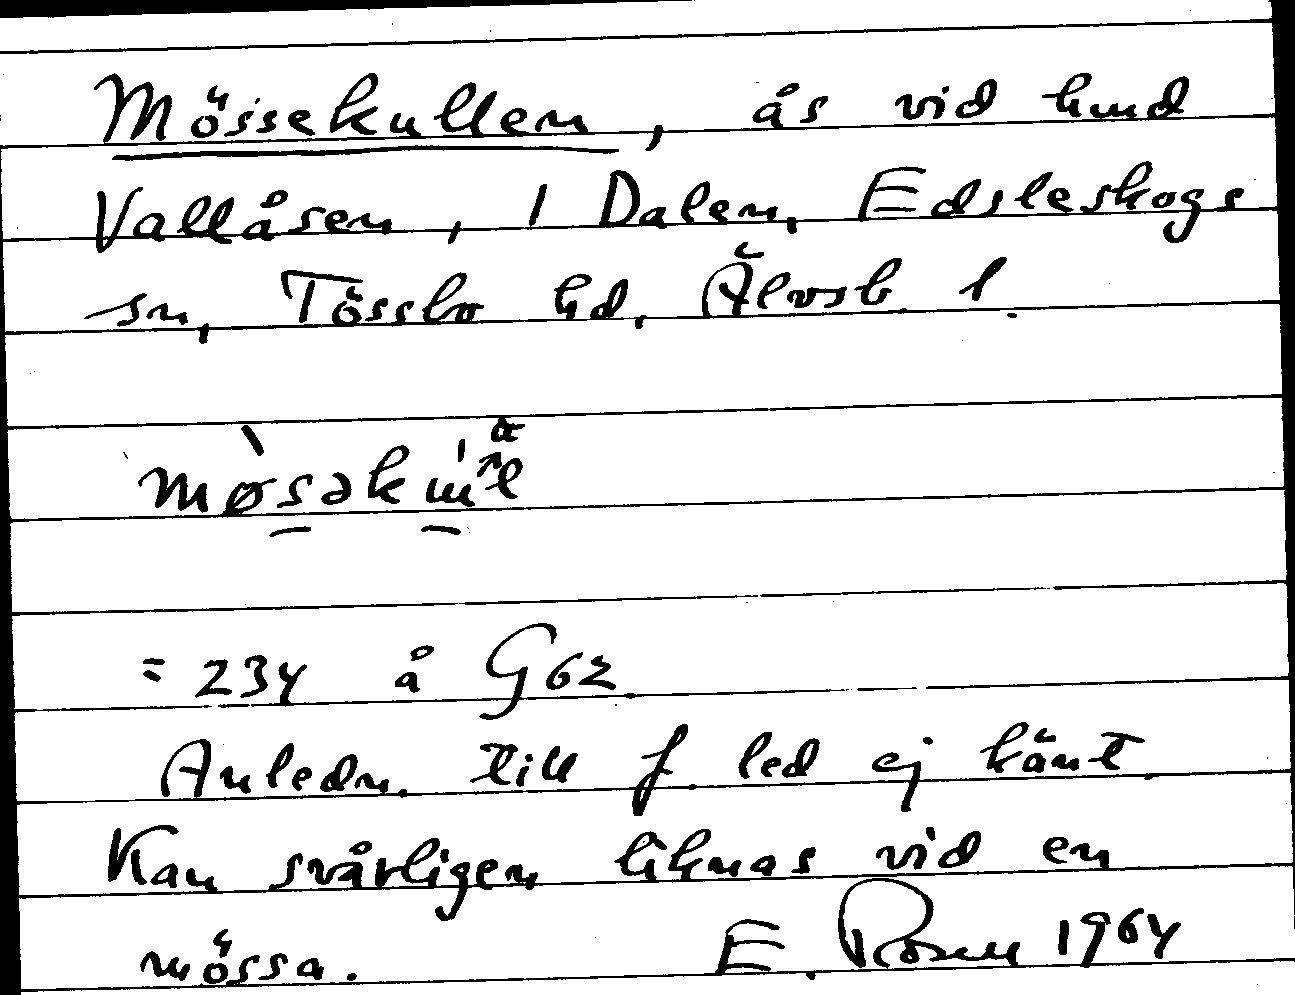 Mössekullen, ås vid hmd
Vallåsen, 1 Dalen, Edsleskogs
sn, Tössbo hd, Älvsb l.
= 234 å G62.
Anledn. till f. led ej känt.
Kan svårligen liknas vid en
mössa. E. Rosen 1964